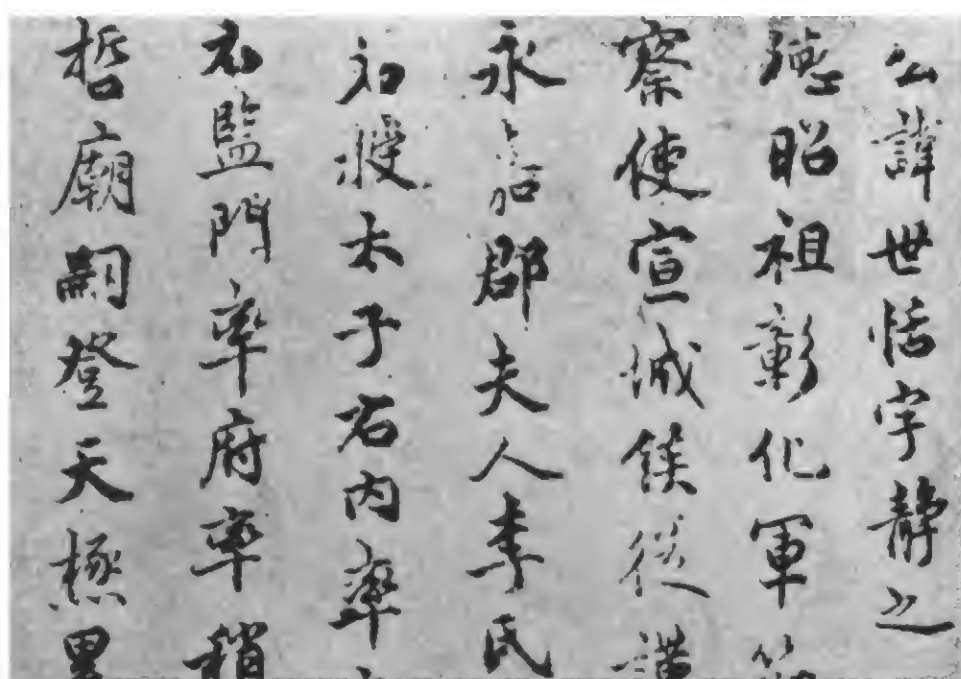 公諱世恬字靜之
德昭祖彰化軍節
察使宣城侯從謹
永嘉郡夫人李氏
初授太子右內率
右監門率府率稍
哲廟嗣登天極累